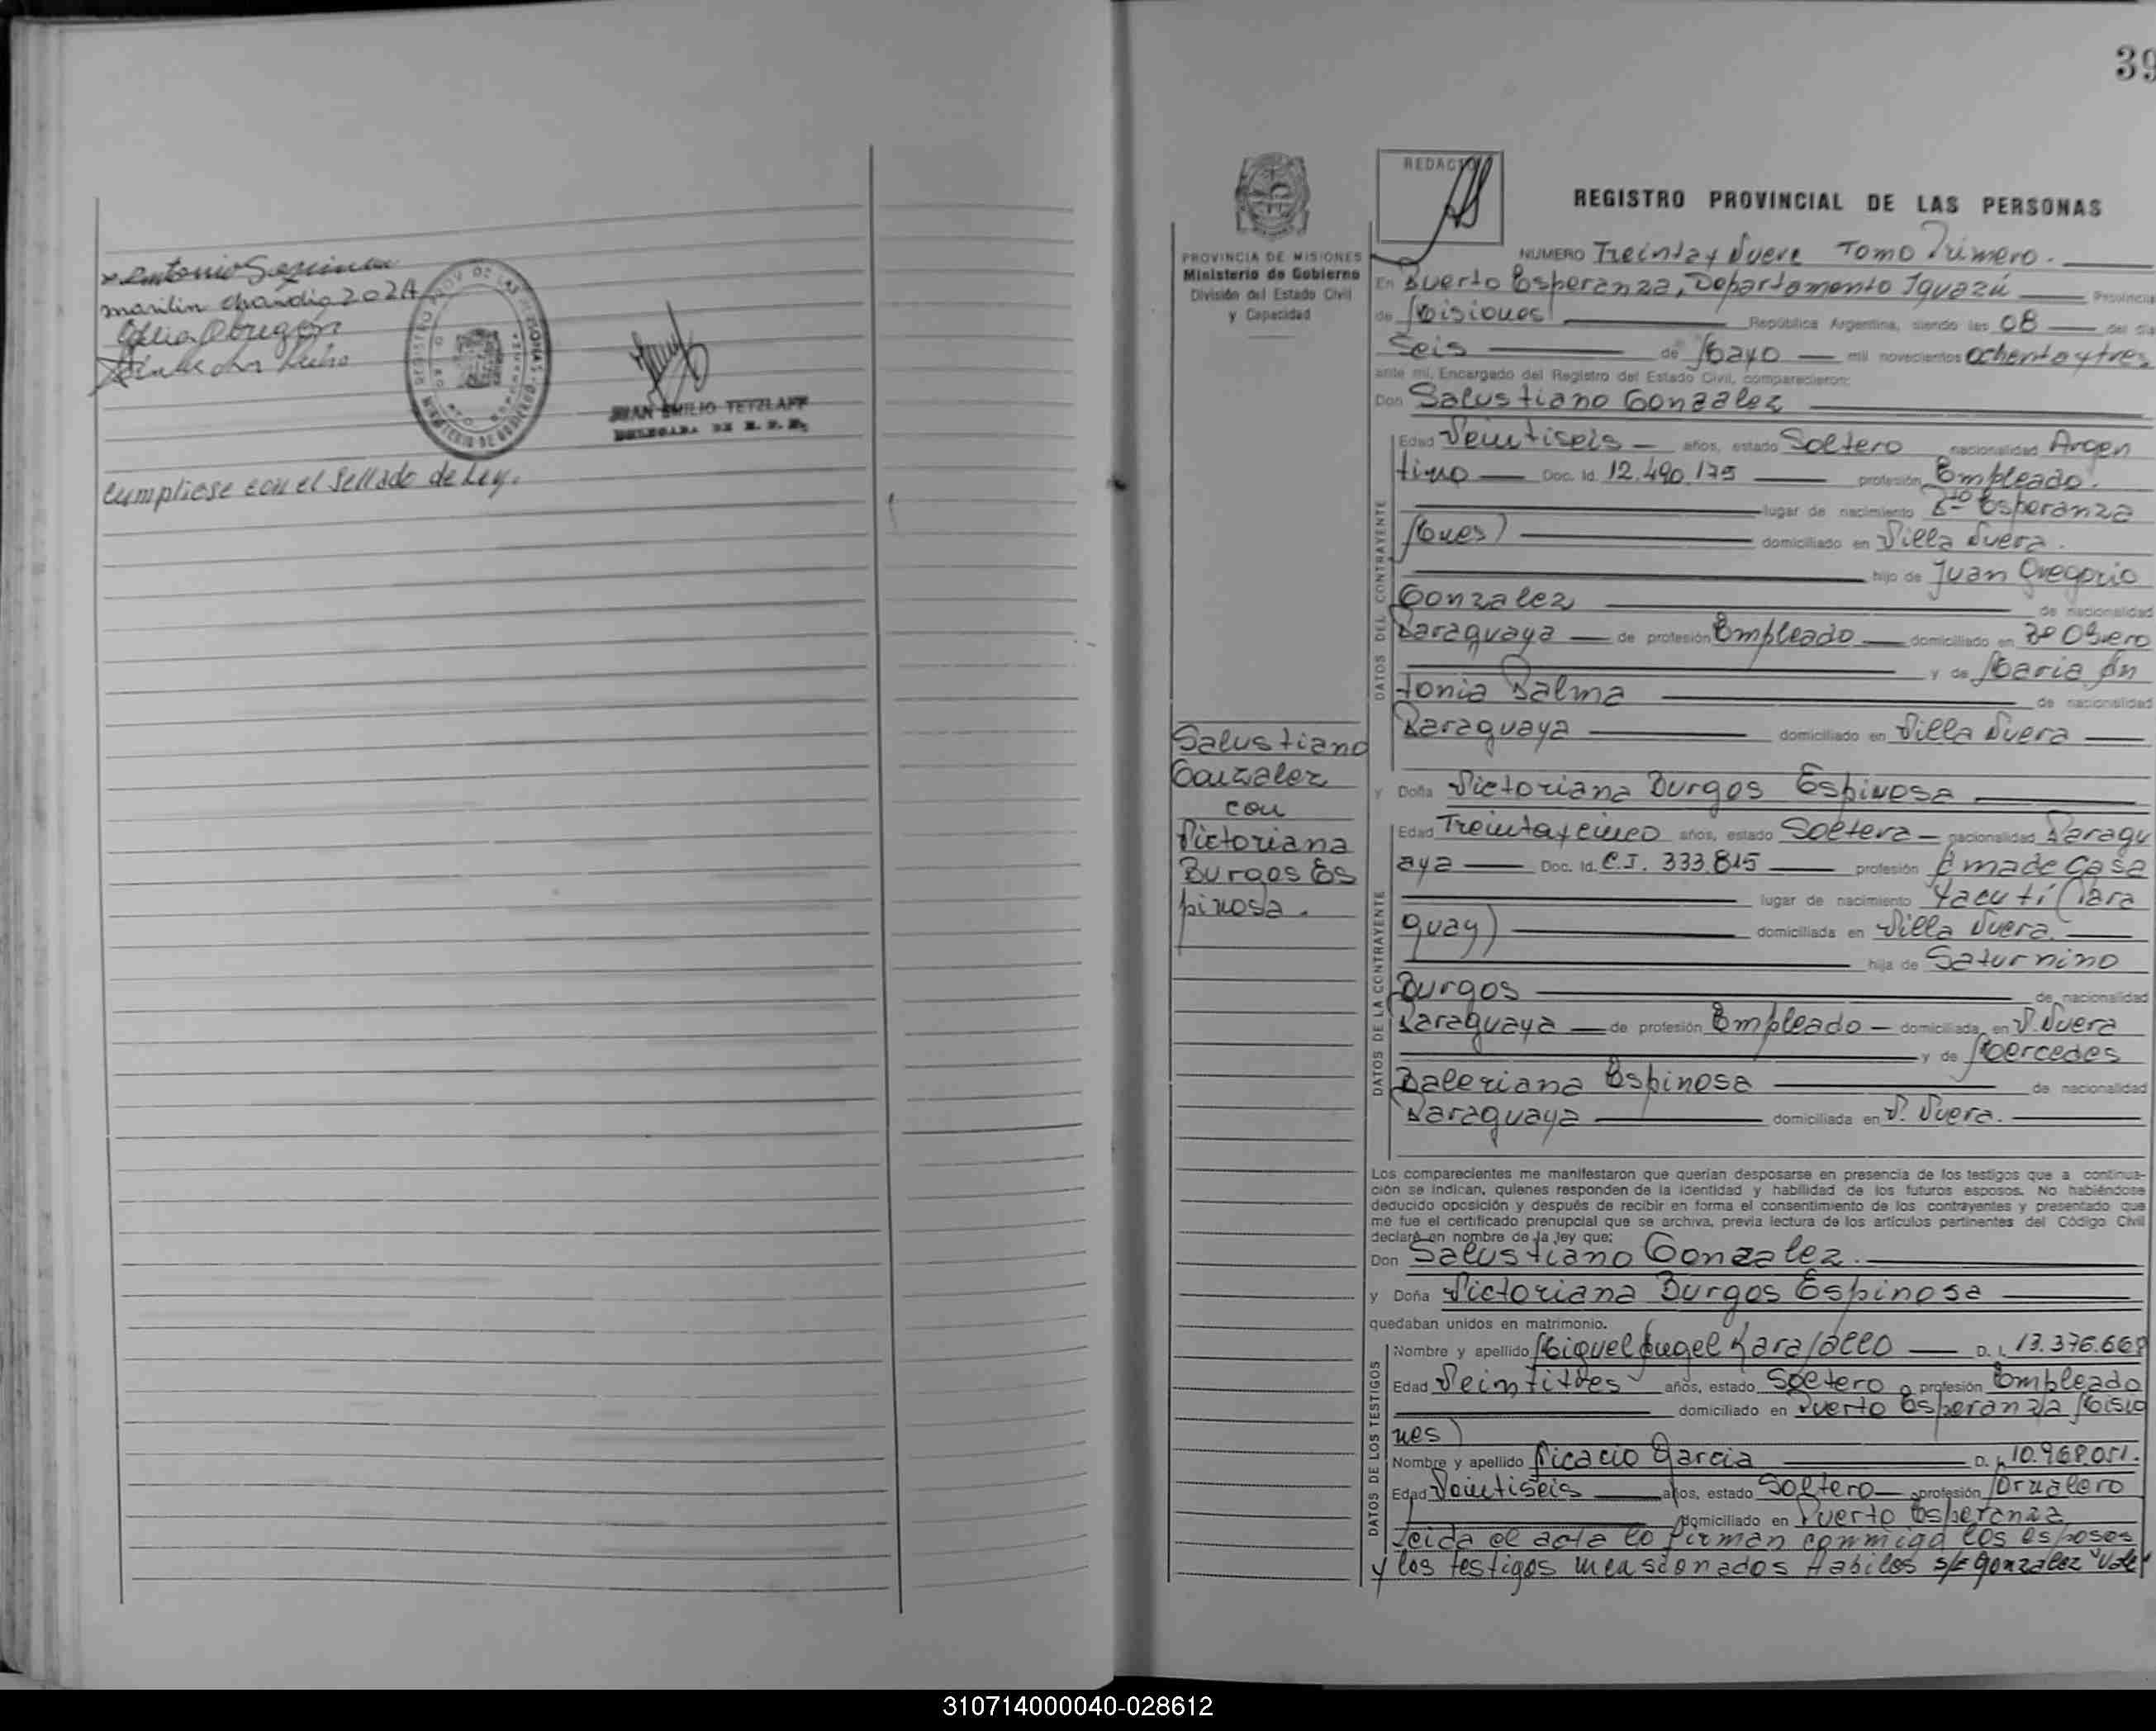 Antonio
marilin
Ofelia Obregón
JUAN EMILIO TETZLAFF
DELEGADA DE R. P. P.
Cumpliese con el Sellado de Ley.
39
REDACTO
REGISTRO PROVINCIAL DE LAS PERSONAS
PROVINCIA DE MISIONES
Ministerio de Gobierno
División del Estado Civil
y Capacidad
NUMERO Treinta y Nueve Tomo Primero.
En Puerto Esperanza, Departamento Iguazú Provincia
de Misiones República Argentina, siendo las 08 del día
Seis de Mayo mil novecientos ochenta y tres
ante mí, Encargado del Registro del Estado Civil, comparecieron:
Don Salustiano Gonzalez
Edad Veintiseis años, estado Soltero nacionalidad Argen
tino Doc. Id. 12.490.175 profesión Empleado.
lugar de nacimiento Pto Esperanza
Mnes) domiciliado en Villa Nueva.
hijo de Juan Gregorio
Gonzalez de nacionalidad
Paraguaya de profesión Empleado domiciliado en Bº Obrero
y de Maria An
tonia Palma de nacionalidad
Paraguaya domiciliado en Villa Nueva
DATOS DEL CONTRAYENTE
Salustiano
Gonzalez
con
Victoriana
Burgos Es
pinosa.
y Doña Victoriana Burgos Espinosa
Edad Treinta y cinco años, estado Soltera nacionalidad Paragu
aya Doc. Id. C.I. 333.815 profesión Ama de Casa
lugar de nacimiento Yacuti (Para
guay) domiciliada en Villa Nueva.
hija de Saturnino
Burgos de nacionalidad
Paraguaya de profesión Empleado domiciliada en V. Nueva
y de Mercedes
Baleriana Espinosa de nacionalidad
Paraguaya domiciliada en V. Nueva.
DATOS DE LA CONTRAYENTE
Los comparecientes me manifestaron que querían desposarse en presencia de los testigos que a continua-
ción se indican, quienes responden de la identidad y habilidad de los futuros esposos. No habiéndose
deducido oposición y después de recibir en forma el consentimiento de los contrayentes y presentado que
me fue el certificado prenupcial que se archiva, previa lectura de los artículos pertinentes del Código Civil
declaré en nombre de la ley que:
Don Salustiano Gonzalez.
y Doña Victoriana Burgos Espinosa
quedaban unidos en matrimonio.
Nombre y apellido Miguel Angel D. I. 13.376.669
Edad Veintitres años, estado Soltero profesión Empleado
domiciliado en Puerto Esperanza Misio
nes)
Nombre y apellido Nicacio Garcia D. I. 10.968.051.
Edad Veintiseis años, estado Soltero profesión
domiciliado en Puerto Esperanza
DATOS DE LOS TESTIGOS
Leida el acta lo firman conmigo los esposos
y los testigos mensionados Habiles s/r Gonzalez "Vale"
310714000040-028612